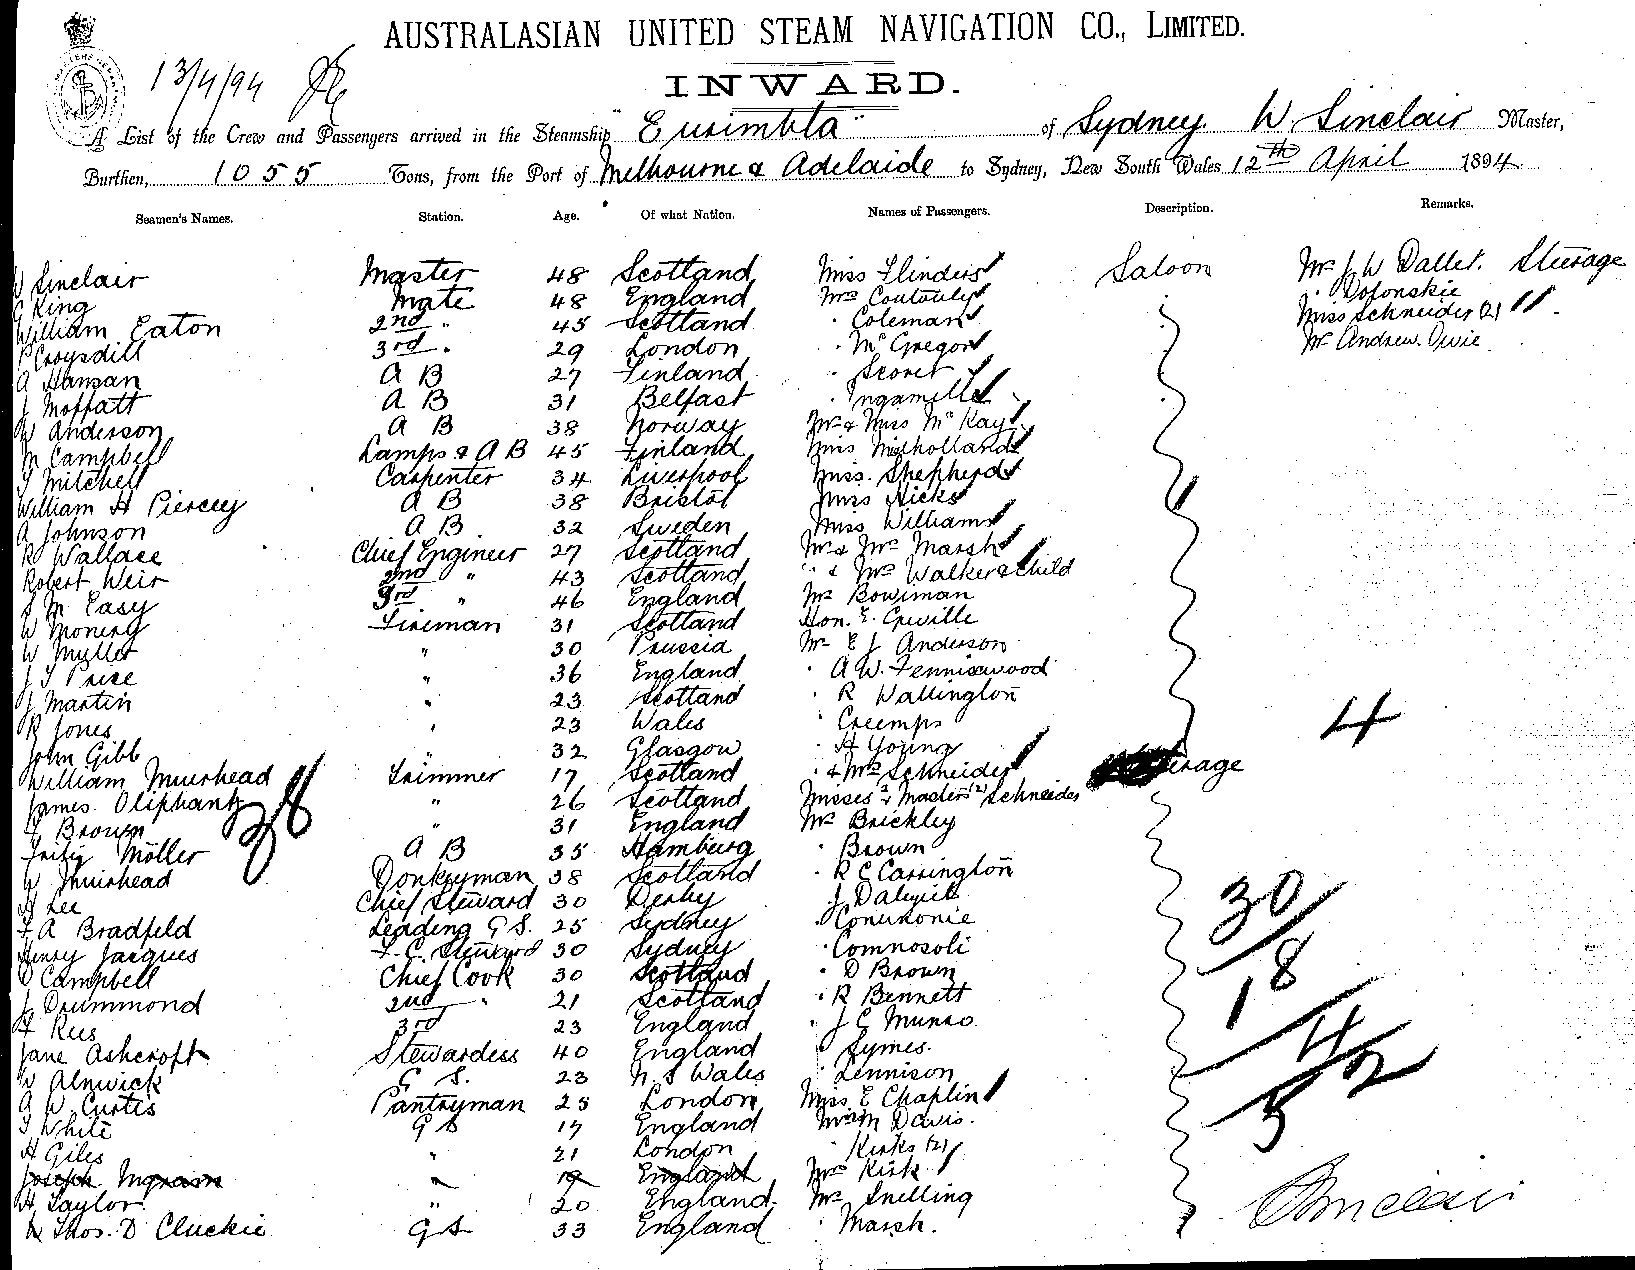 AUSTRALASIAN UNITED STEAM NAVIGATION CO., LIMITED.
13/4/94
INWARD.
A List of the Crew and Passengers arrived in the Steamship "Eurimbla" of Sydney W Sinclair Master,
Burthen, 1055 Tons, from the Port of Melbourne & Adelaide to Sydney, New South Wales 12th April 1894
Seamen's Names. Station. Age. Of what Nation. Names of Passengers. Description. Remarks.
W Sinclair Master 48 Scotland Miss Flinders Saloon Mr J W Dallet. Steerage
G King Mate 48 England Mrs
William Eaton 2nd " 45 Scotland " Coleman Miss Schneider (2)
3rd " 29 London " McGregor Mr Andrew
A Hansan A B 27 Finland
J Moffatt A B 31 Belfast " Ingamells
W Anderson A B 38 Norway Mr & Miss McKay
M Campbell Lamps & A B 45 Finland Miss Milholland
J Mitchell Carpenter 34 Liverpool Miss Shepherd
William H Piercey A B 38 Bristol Miss Hicks
A Johnson A B 32 Sweden Miss Williams
R Wallace Chief Engineer 27 Scotland Mr & Mrs Marsh
Robert Weir 2nd " 43 Scotland " & Mrs Walker & Child
S M Easy 3rd " 46 England Mr Bowman
W Fireman 31 Scotland Hon. E. Greville
W Myller " 30 Prussia Mr E J Anderson
J T Price " 36 England " A W. Fenniswood
J Martin " 23 Scotland " R Wallington
R Jones " 23 Wales " Creemps
John Gibb " 32 Glasgow " H Young
William Muirhead Trimmer 17 Scotland " & Mrs Schneider
James Oliphant " 26 Scotland Misses 2 & Masters (2) Schneider
Brown " 31 England Mr Brickley
Fritz Möller A B 35 Hamburg " Brown
W Muirhead Donkeyman 38 Scotland " R C Carrington
H Lee Chief Steward 30 Derby
F A Bradfeld Leading G S. 25 Sydney
Henry Jacques F. C. Steward 30 Sydney " Comnosoli
D Campbell Chief Cook 30 Scotland " D Brown
J Drummond 2nd " 21 Scotland " R Bennett
F Rees 3rd 23 England " J C Munro
Jane Ashcroft Stewardess 40 England " Symes.
W Alnwick G S. 23 N S Wales " Lennison
G W Curtis Pantryman 25 London Miss E Chaplin
T White G S 17 England M Davis.
H Giles " 21 London " Kirks (2)
Joseph Ingram " 19 England Mrs Kirk
H Taylor " 20 England Mr Snelling
Thos. D Cluckie G S 33 England " Marsh.
4
30
18
4
52
W Sinclair